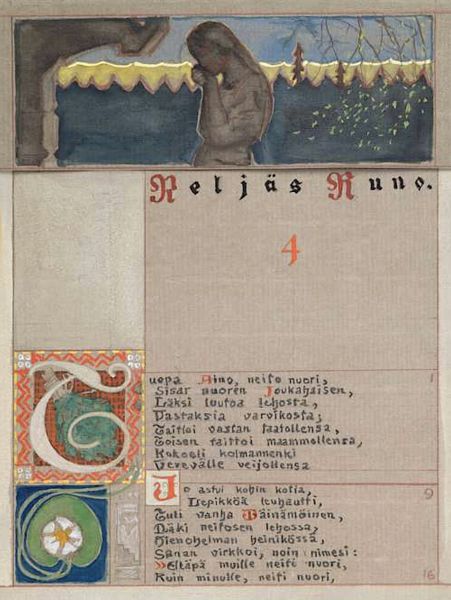 Neljäs Runo.
4
Tuopa Aino, neito nuori, 1
Sisar nuoren Joukahaisen,
Läksi luutoa lehosta,
Vastaksia varvikosta;
Taittoi vastan taatollensa,
Toisen taittoi maammollensa,
Kokoeli kolmannenki
Verevälle veijollensa
Jo astui kohin kotia, 9
Lepikköä leuhautti,
Tuli vanha Väinämöinen,
Näki neitosen lehossa,
Hienohelman heinikössä,
Sanan virkkoi, noin nimesi:
»Eläpä muille neiti nuori,
Kuin minulle, neiti nuori, 16